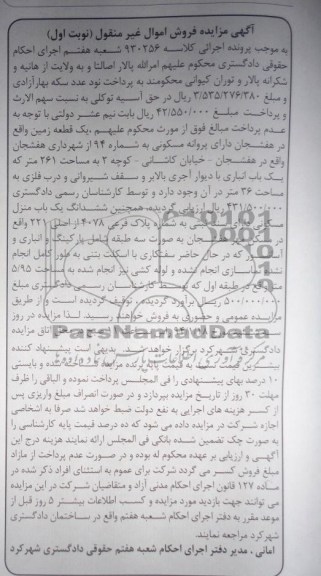 آگهی مزایده فروش اموال غیر منقول (نوبت اول)
به موجب پرونده اجرائی کلاسه ۹۳۰۲۵۶ شعبه هفتم اجرای احکام
حقوقی دادگستری محکوم علیهم امرالله پالار اصالتا و به ولایت از هانیه و
شکرانه پالار و توران کیوانی محکومند به پرداخت نود عدد سکه بهارآزادی
و مبلغ ۳/۵۳۵/۲۷۶/۳۸۰ ریال در حق آسیه توکلی به نسبت سهم الارث
و پرداخت مبلغ ۴۲/۵۵۰/۰۰۰ ریال بابت نیم عشر دولتی با توجه به
عدم پرداخت مبالغ فوق از مورت محکوم علیهم، یک قطعه زمین واقع
در هفشجان دارای پروانه مسکونی به شماره ۹۴ از شهرداری هفشجان
واقع در هفشجان - خیابان کاشانی - کوچه ۲ به مساحت ۲۶۱ متر که
یک باب انباری با دیوار آجری بالابر و سقف شیروانی و درب فلزی به
مساحت ۳۶ متر در آن وجود دارد و توسط کارشناسان رسمی دادگستری
۴۳۱/۵۰۰/۰۰۰ ریال ارزیابی گردیده، همچنین ششدانگ یک باب منزل
به شماره پلاک فرعی ۴۰۷۸ از اصلی ۲۲۱ واقع
در هفشجان به صورت سه طبقه شامل پارکینگ و انباری و
که در حال حاضر سفتکاری با اسکلت بتنی به طور کامل انجام
سازی انجام نشده و لوله کشی نیز انجام شده به مساحت ۵/۹۵
در طبقه اول که توسط کارشناسان رسمی دادگستری مبلغ
۵۰۰/۰۰۰/۰۰۰ ریال برآورد گردیده، توقیف گردیده است و از طریق
مزایده عمومی و حضوری به فروش خواهد رسید. لذا مزایده در روز
اتاق مزایده
دادگستری شهرکرد برگزار خواهد شد. بدیهی است پیشنهاد کننده
بیشترین قیمت نسبت به قیمت پایه برنده مزایده شناخته شده و بایستی
۱۰ درصد بهای پیشنهادی را فی المجلس پرداخت نموده و الباقی را ظرف
مهلت ۳۰ روز از تاریخ مزایده بپردازد و در صورت انصراف مبلغ واریزی پس از
کسر هزینه های اجرایی به نفع دولت ضبط خواهد شد صرفا به اشخاصی
اجازه شرکت در مزایده داده می شود که ده درصد قیمت پایه کارشناسی را
به صورت چک تضمین شده بانکی فی المجلس ارائه نمایند هزینه درج این
آگهی و ارزیابی بر عهده محکوم له بوده و در صورت عدم پرداخت از مازاد
مبلغ فروش کسر می گردد شرکت برای عموم به استثنای افراد ذکر شده در
ماده ۱۲۷ قانون اجرای احکام مدنی آزاد و متقاضیان شرکت در این مزایده
می توانند جهت بازدید مورد مزایده و کسب اطلاعات بیشتر ۵ روز قبل از
موعد مقرر به دفتر اجرای احکام شعبه هفتم واقع در ساختمان دادگستری
شهرکرد مراجعه نمایند.
امانی . مدیر دفتر اجرای احکام شعبه هفتم حقوقی دادگستری شهرکرد
ParsNamadData